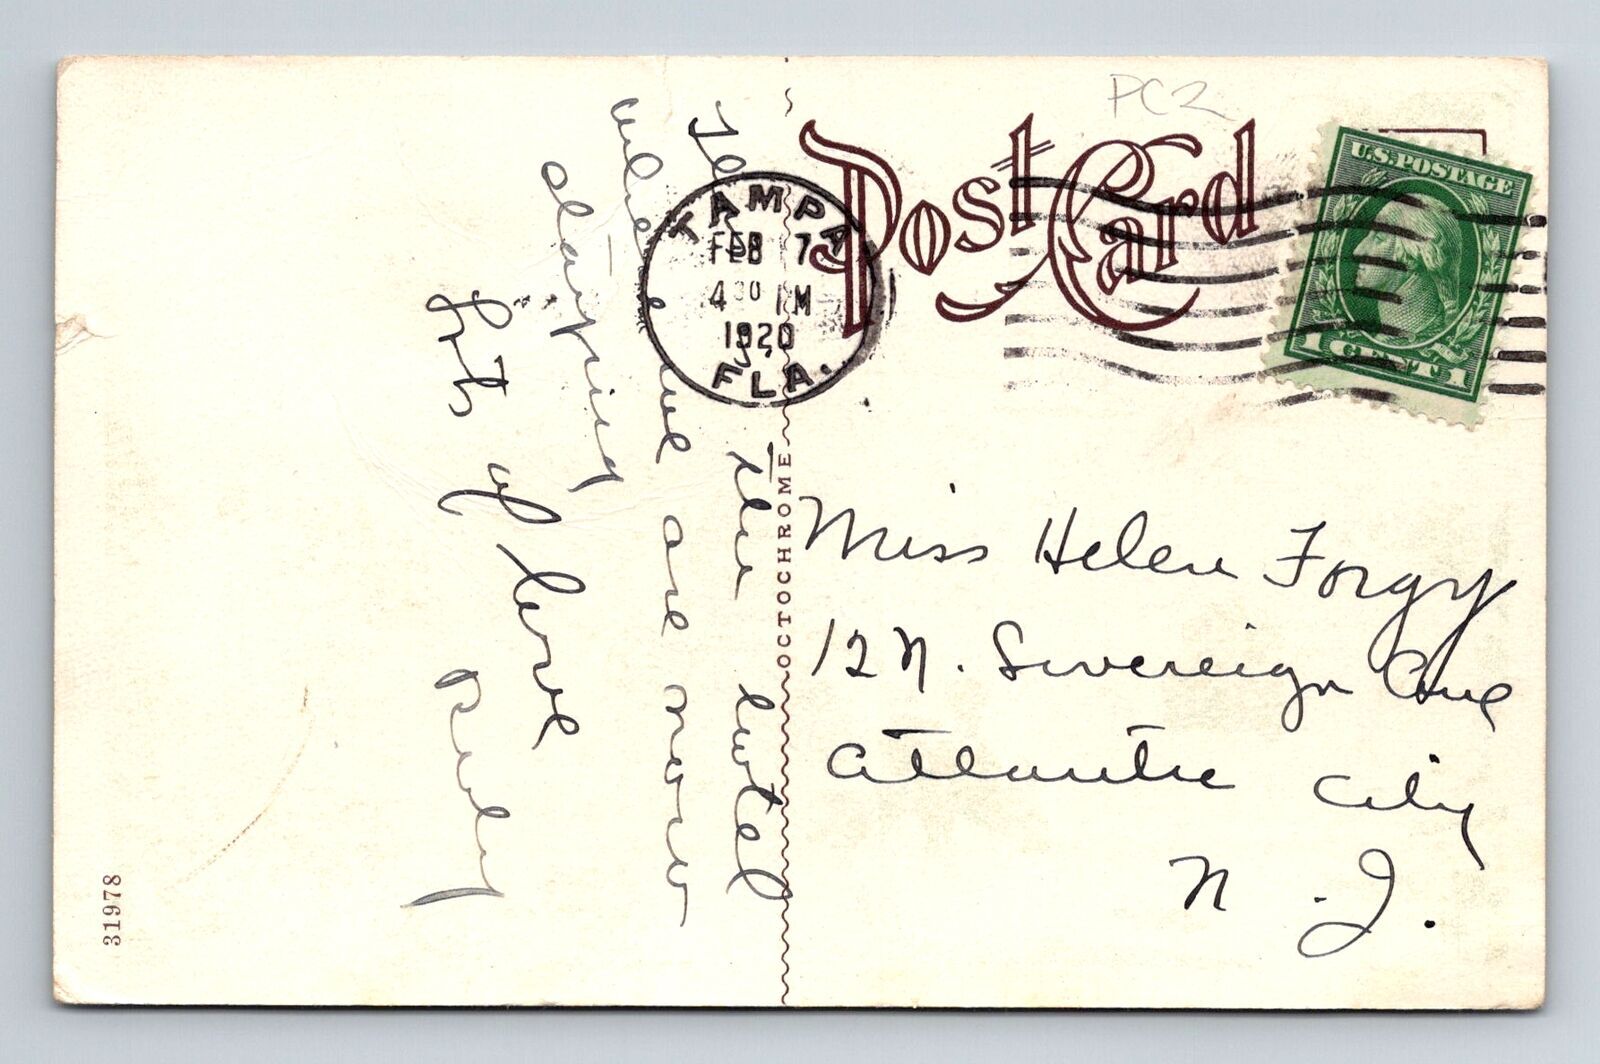 PC2
Post Card
U.S. POSTAGE
1 CENT 1
TAMPA
FEB 7
4 30 PM
1920
FLA.
the hotel
where we are now
staying
Lots of love
Ruby
OCTOCHROME
Miss Helen Forgy
12 N. Sovereign Ave
Atlantic City
N. J.
31978